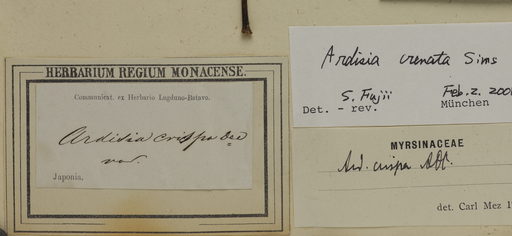 HERBARIUM REGIUM MONACENSE.
Communicat. ex Herbario Lugduno-Batavo.
Ardisia crispa
var.
Japonia.
Ardisia crenata Sims
S. Fujii Feb. 2.
Det. – rev. München
MYRSINACEAE
Ard. crispa
det. Carl Mez